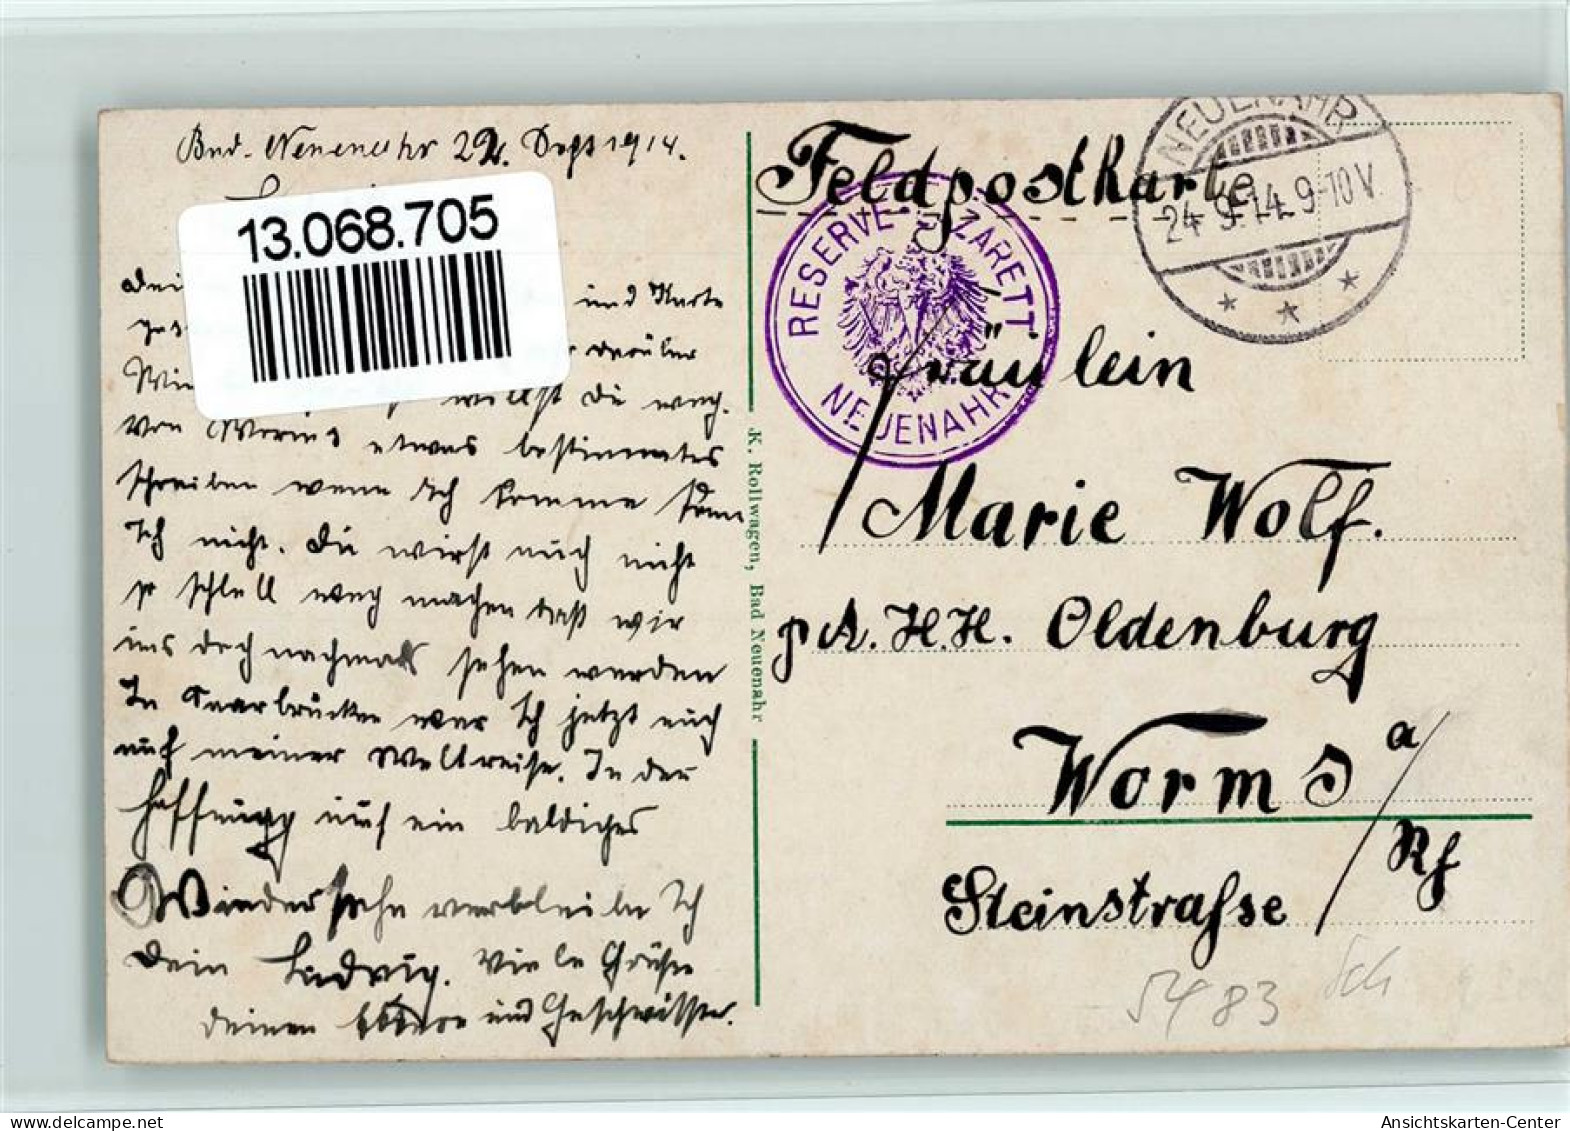 Bad-Neuenahr 22. Sept 1914.
13.068.705
und Karte
darüber
willst du weg.
von Worms etwas bestimmtes
schreiben wenn ich komme kann
Ich nicht. Du wirst auch nicht
so schnell weg machen daß wir
uns doch nachmals sehen werden
In Saarbrücken war Ich jetzt auch
auf meiner Weltreise. In der
Hoffnung auf ein baldiges
Wiedersehn verbleibe Ich
Dein Ludwig. Viele Grüße
deinen Eltern und Geschwister.
K. Rollwagen, Bad Neuenahr
Feldpostkarte
NEUENAHR
24 9.14.9-10V
RESERVE-LAZARETT
NEUENAHR
Fräulein
Marie Wolf.
p A. H.H. Oldenburg
Worms a/
Rh
Steinstrasse
5483 Sch
Ansichtskarten-Center